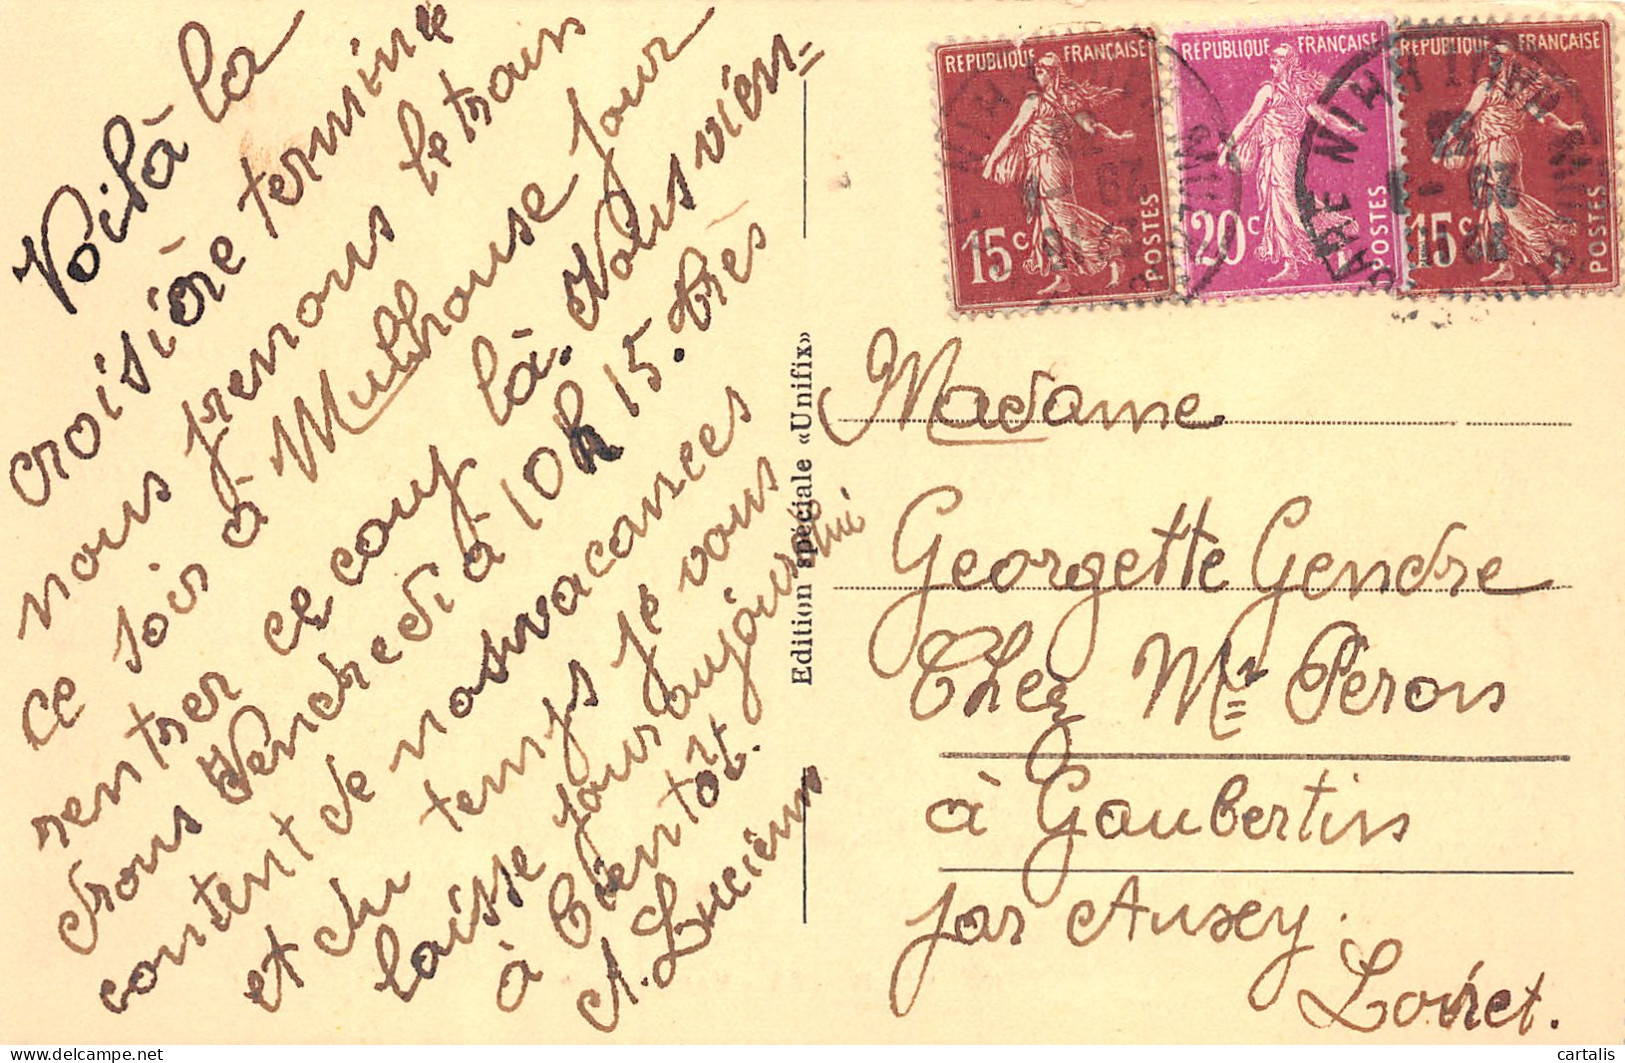 Voilà la
croisière terminée
nous prenons le train
ce soir à Mulhouse pour
rentrer ce coup là. Nous vien=
drons Vendredi à 10h 15. très
content de nos vacances
et du temps je vous
laisse pour aujourd'hui
à bientôt.
A. Lucien
Edition spéciale «Unifix»
REPUBLIQUE FRANÇAISE
15c
POSTES
REPUBLIQUE FRANÇAISE
20c
POSTES
REPUBLIQUE FRANÇAISE
15c
POSTES
GARE
Madame
Georgette Gendre
Chez Mr Peron
à Gaubertin
par Auxey.
Loiret.
delcampe.net
cartalis